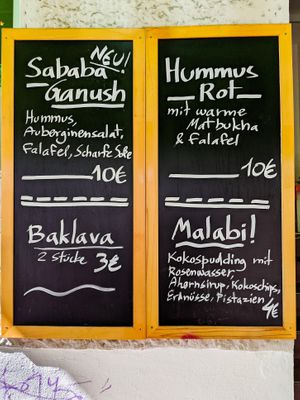 NEU!
Sababa
Ganush
Hummus,
Auberginensalat,
Falafel, Scharfe Soße
10€
Baklava
2 stücke 3€
Hummus
Rot
mit warme
Matbukha
& Falafel
10€
Malabi!
Kokospudding mit
Rosenwasser,
Ahornsirup, Kokoschips,
Erdnüsse, Pistazien 4€